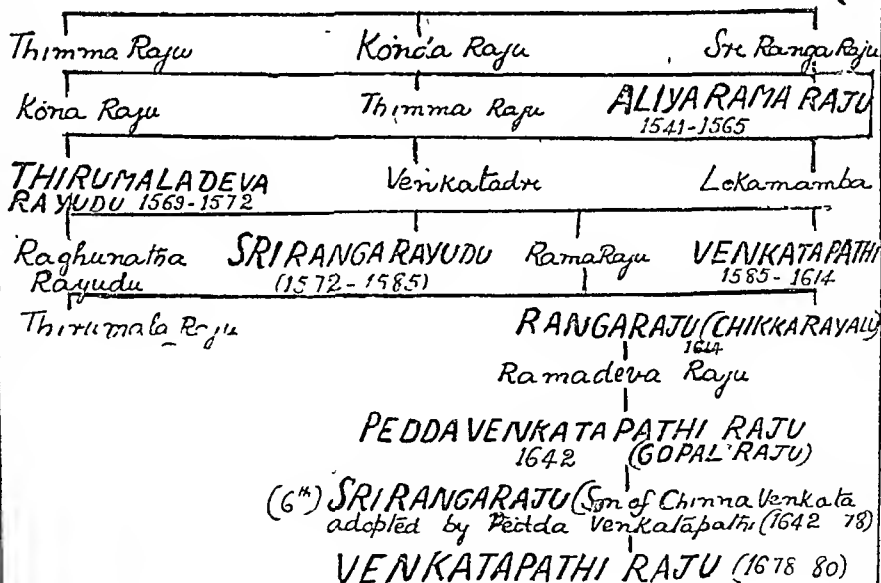 Thimma Raju Konda Raju Sre Ranga Raju
Kona Raju Thimma Raju ALIYA RAMA RAJU
1541-1565
THIRUMALADEVA Venkatadre Lokamamba
RAYUDU 1569-1572
Raghunatha SRI RANGA RAYUDU Rama Raju VENKATAPATHI
Rayudu (1572-1585) 1585-1614
Thirumala Raju RANGARAJU (CHIKKARAYALU)
1614
Ramadeva Raju
PEDDAVENKATAPATHI RAJU
1642 (GOPAL RAJU)
(6th) SRIRANGARAJU (Son of Chinna Venkata
adopted by Pedda Venkatapathi (1642 78)
VENKATAPATHI RAJU (1678 80)